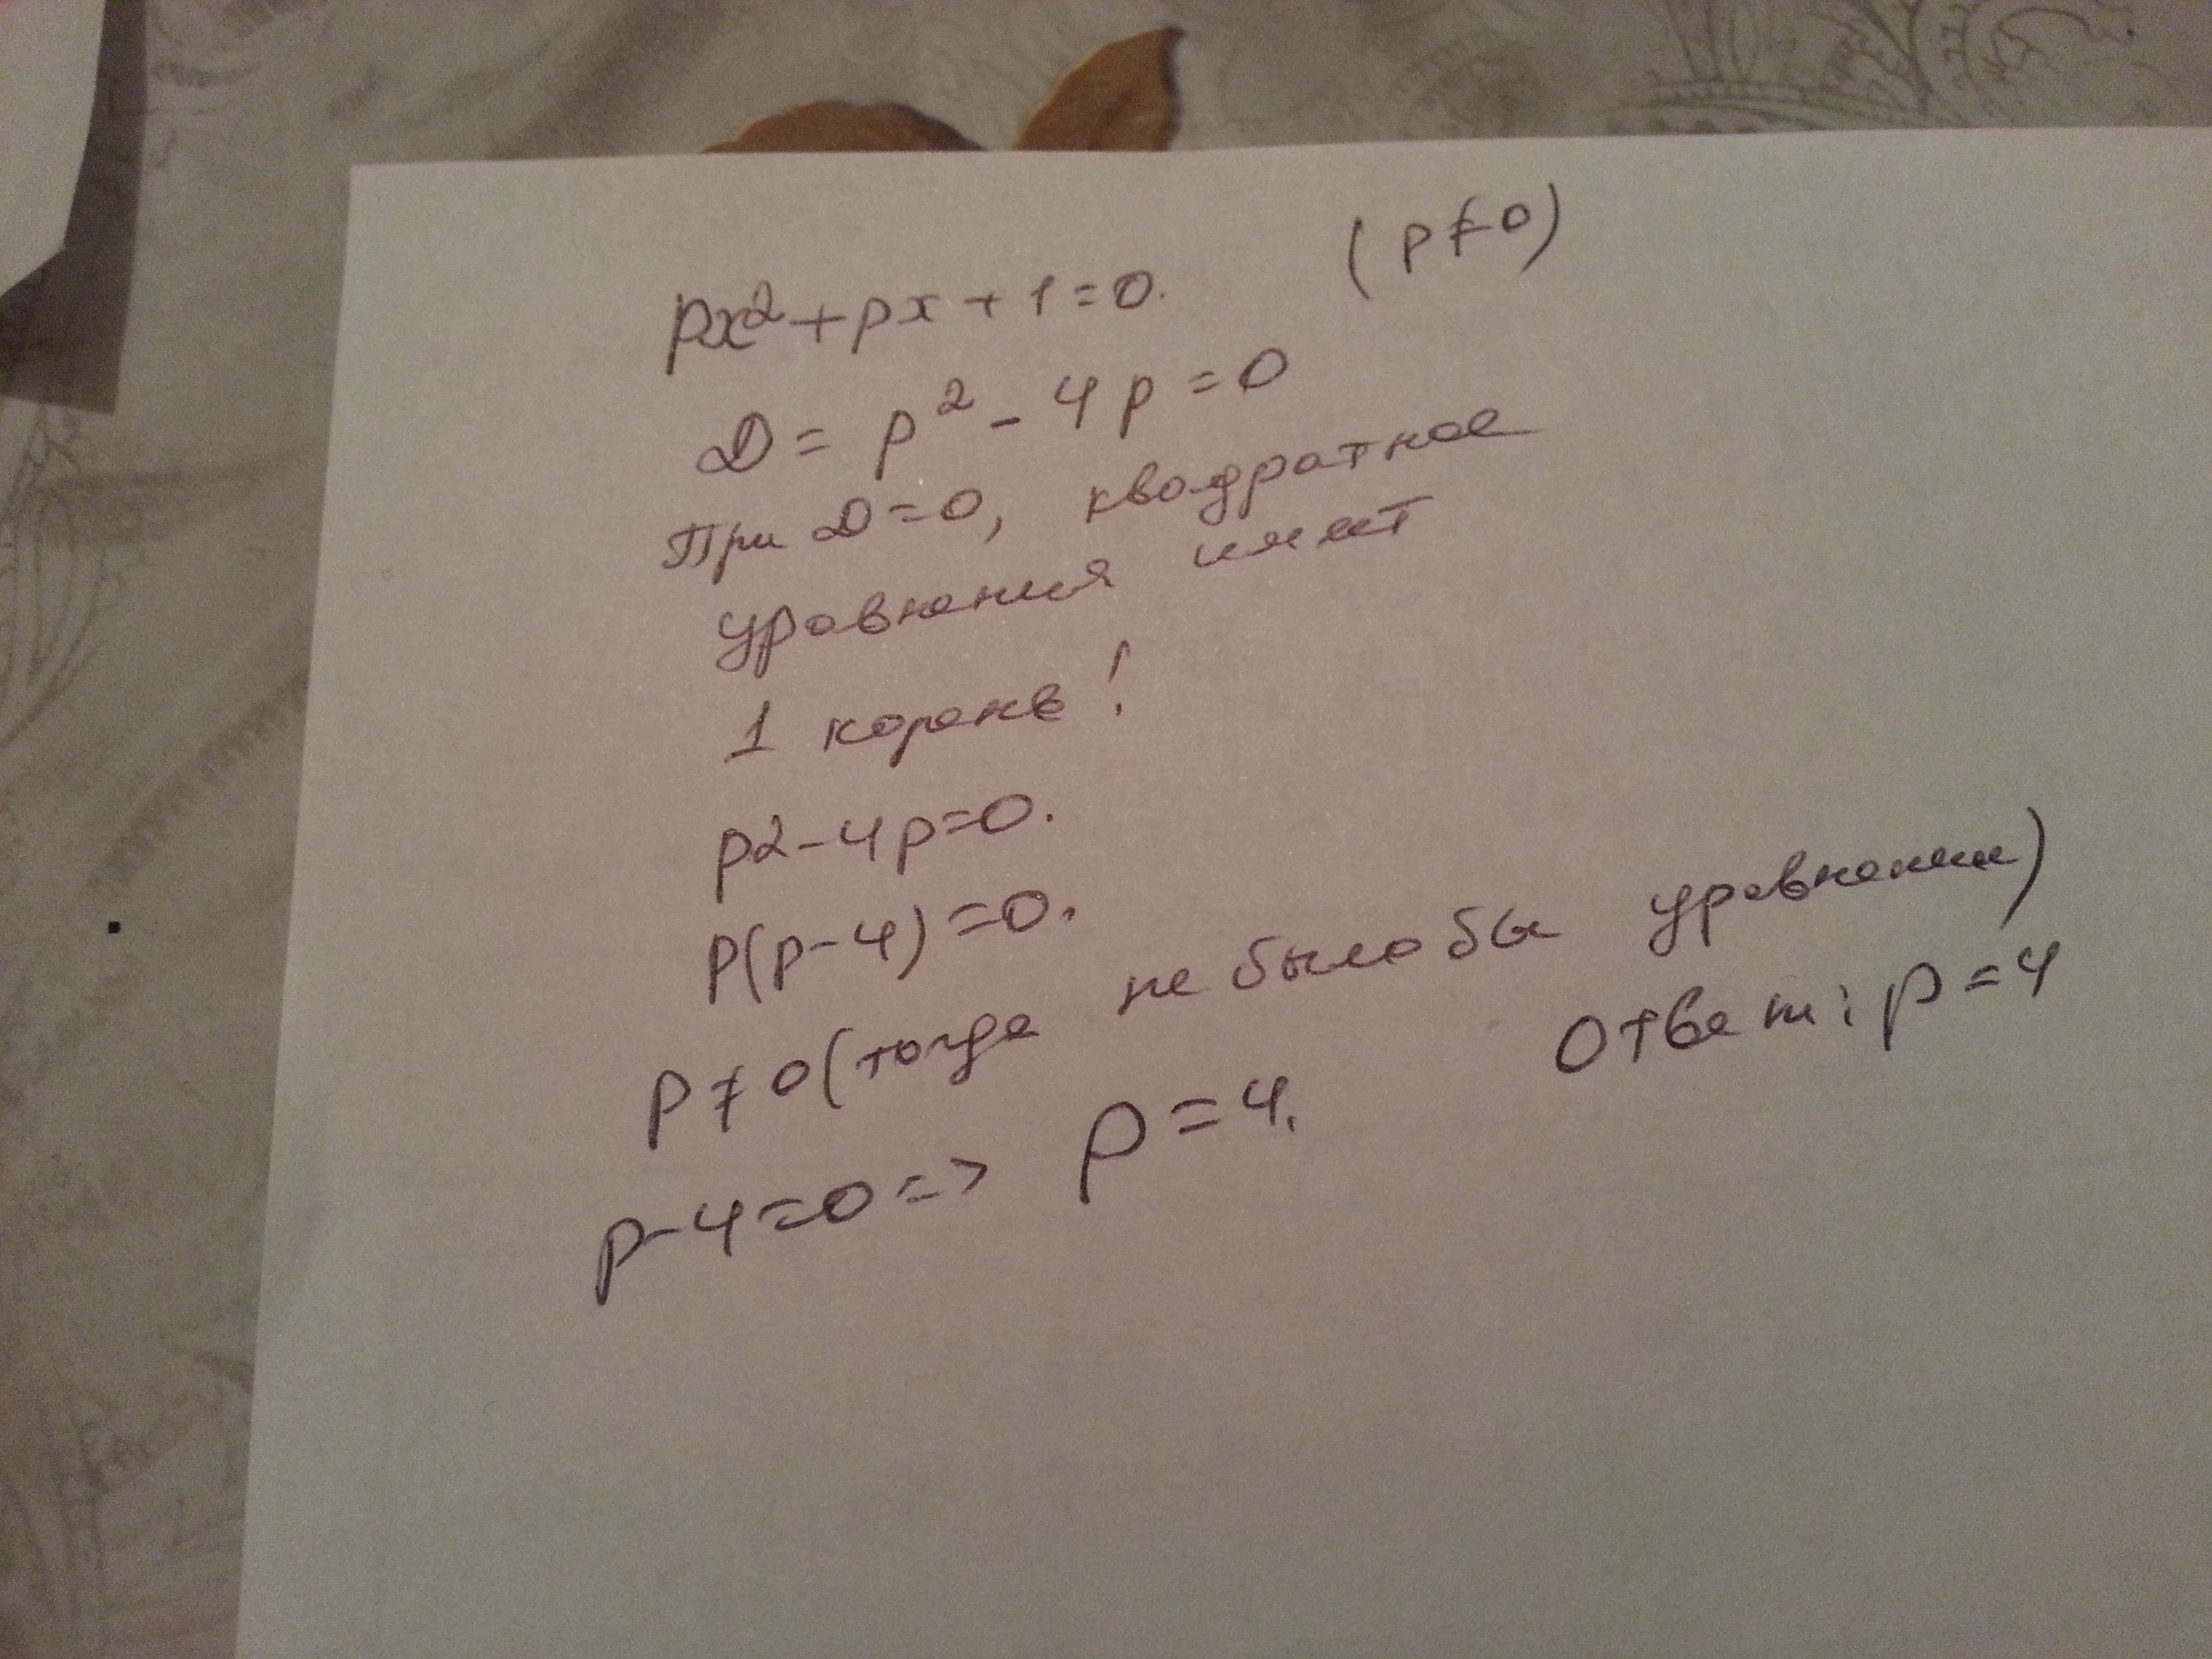 px²+px+1=0. (p≠0)
D= p²-4p=0
При D=0, квадратное
уравнения имеет
1 корень!
p2-4p=0.
P(p-4)=0.
P≠0(тогда не было бы уравнения)
p-4=0=> p=4. Ответ: p=4